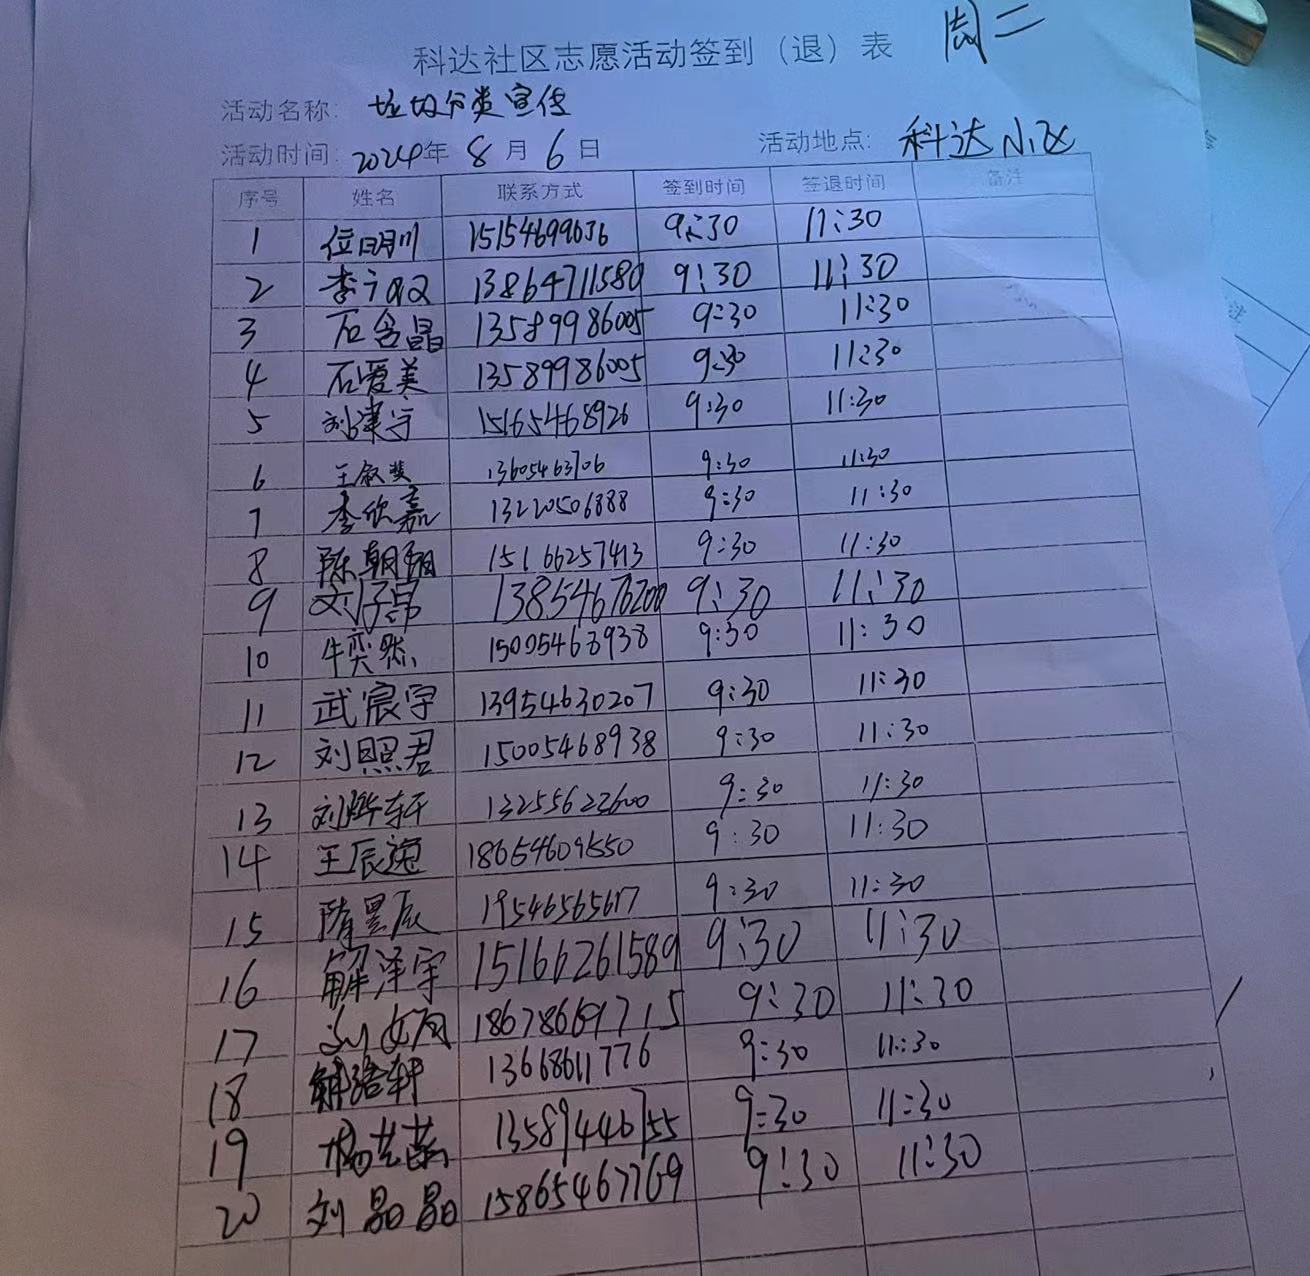 周二
科达社区志愿活动签到（退）表
活动名称: 垃圾分类宣传
活动时间: 2024年 8 月 6 日 活动地点: 科达小区
序号 姓名 联系方式 签到时间 签退时间 备注
1 位明川 15154699636 9:30 11:30
2 李 13864711580 9:30 11:30
3 石含晶 13589986005 9:30 11:30
4 石爱美 13589986005 9:30 11:30
5 刘津宇 15165468926 9:30 11:30
6 王叙斐 13605463706 9:30 11:30
7 李欣嘉 13220506888 9:30 11:30
8 陈朝翔 15166257413 9:30 11:30
9 13854676200 9:30 11:30
10 牛奕然 15005468938 9:30 11:30
11 武宸宇 13954630207 9:30 11:30
12 刘照君 15005468938 9:30 11:30
13 刘烨轩 13255623600 9:30 11:30
14 王辰逸 18654609550 9:30 11:30
15 隋昱辰 19546565617 9:30 11:30
16 解泽宇 15166261589 9:30 11:30
17 18678669715 9:30 11:30
18 轩 13668611776 9:30 11:30
19 杨艺菡 13589446755 9:30 11:30
20 刘晶晶 15865467769 9:30 11:30